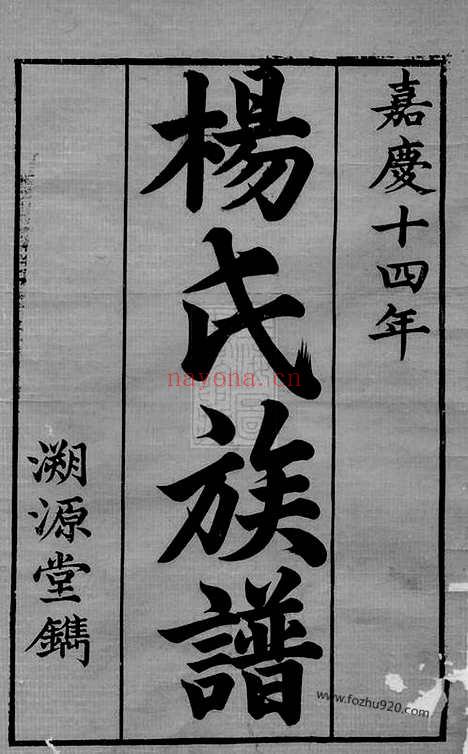 嘉慶十四年
楊氏族譜
溯源堂鐫
nayona.cn
www.fozhu920.com